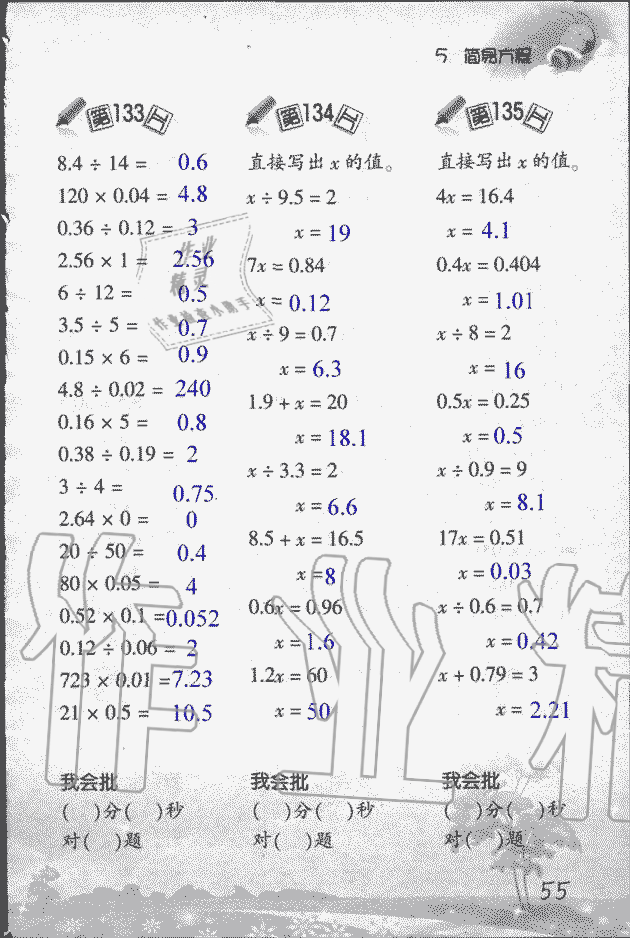 5 简易方程
第133工
8.4 ÷ 14 = 0.6
120 × 0.04 = 4.8
0.36 ÷ 0.12 = 3
2.56 × 1 = 2.56
6 ÷ 12 = 0.5
3.5 ÷ 5 = 0.7
0.15 × 6 = 0.9
4.8 ÷ 0.02 = 240
0.16 × 5 = 0.8
0.38 ÷ 0.19 = 2
3 ÷ 4 = 0.75
2.64 × 0 = 0
20 ÷ 50 = 0.4
80 × 0.05 = 4
0.52 × 0.1 = 0.052
0.12 ÷ 0.06 = 2
723 × 0.01 = 7.23
21 × 0.5 = 10.5
我会批
( )分( )秒
对( )题
第134工
直接写出 x 的值。
x ÷ 9.5 = 2
x = 19
7x = 0.84
x = 0.12
x ÷ 9 = 0.7
x = 6.3
1.9 + x = 20
x = 18.1
x ÷ 3.3 = 2
x = 6.6
8.5 + x = 16.5
x = 8
0.6x = 0.96
x = 1.6
1.2x = 60
x = 50
我会批
( )分( )秒
对( )题
第135工
直接写出 x 的值。
4x = 16.4
x = 4.1
0.4x = 0.404
x = 1.01
x ÷ 8 = 2
x = 16
0.5x = 0.25
x = 0.5
x ÷ 0.9 = 9
x = 8.1
17x = 0.51
x = 0.03
x ÷ 0.6 = 0.7
x = 0.42
x + 0.79 = 3
x = 2.21
我会批
( )分( )秒
对( )题
作业
精灵
作业检查小助手
作业精
55